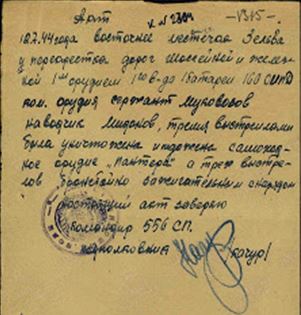 Акт
К № 2304
-1315-
10.7.44 года восточнее местечка Зельва
у перекрестка дорог шоссейной и желез-
ной 1ым орудием 1го в-да 1 батареи 160
ком. орудия сержант Муковозов
наводчик Миронов, тремя выстрелами
была уничтожена и подожжена самоход-
ное орудие „Пантера" а трех выстре-
лов бронебойно зажигательным снарядом
настоящий акт заверяю
командир 556 СП.
подполковник Качур!